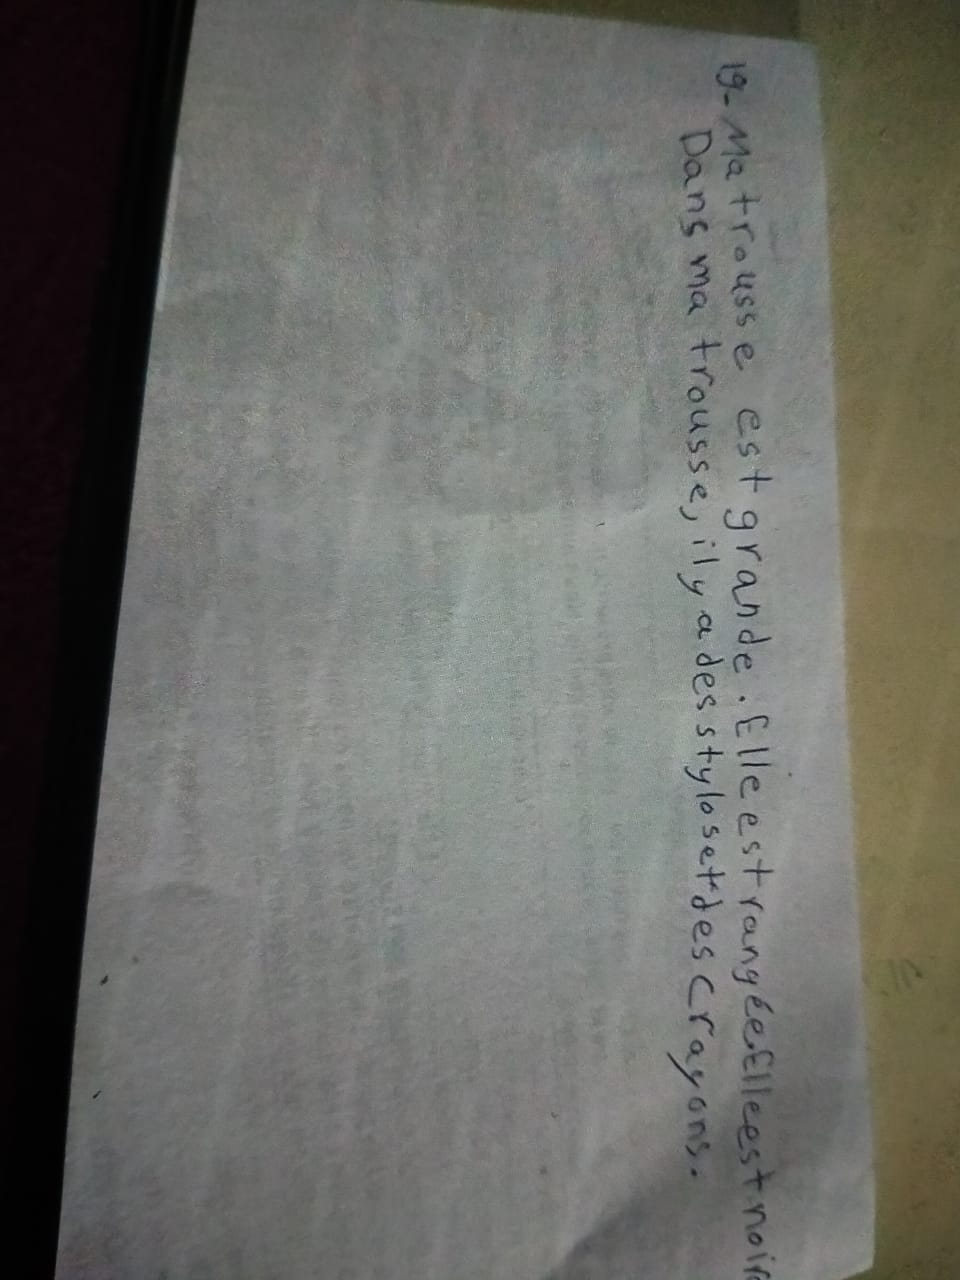 19- Ma trousse est grande. Elle est rangée. Elle est noire
Dans ma trousse, il y a des stylos et des crayons.